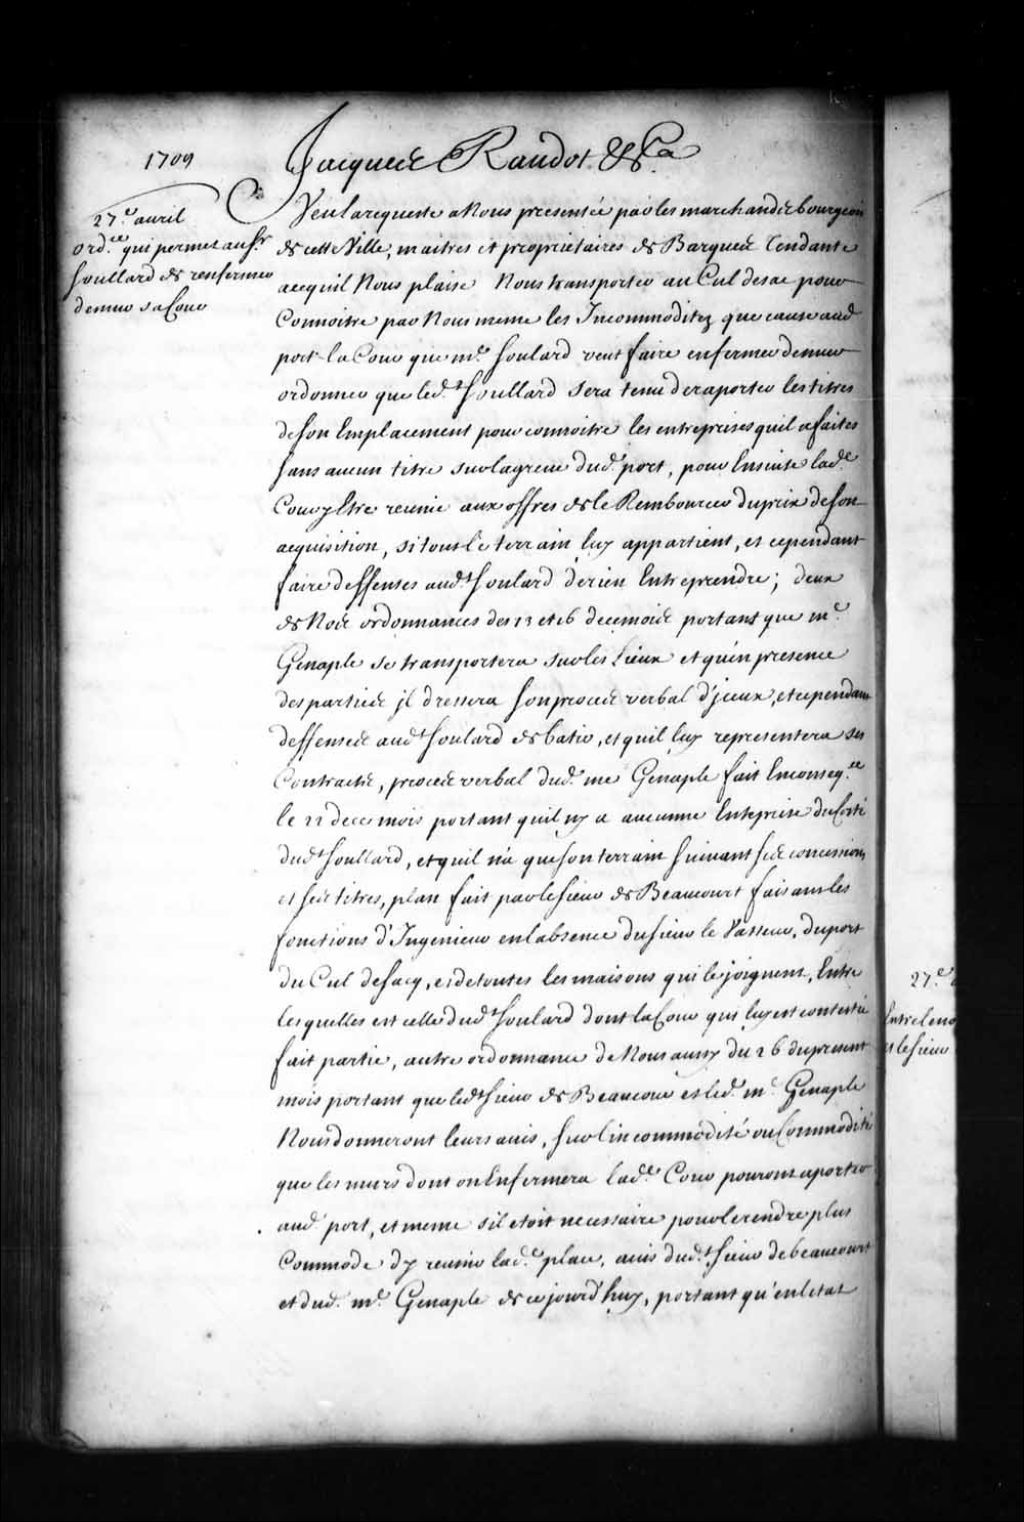 1709
Jacques Raudot &ca
27e. avril
ord.ce qui permet au Sr
Soullard de renfermer
de mur sa Cour
Veu la requeste a Nous presentée par les marchands et bourgeois
de cette Ville, maitres et proprietaires de Barques tendante
acequil Nous plaise Nous transporter au Cul desac pour
Connoitre par Nous meme les Incommoditez que cause aud
port la Cour que me. Soulard veut faire enfermer demur
ordonner que led.t Soullard sera tenu deraporter les titres
deson Emplacement pour connoitre les entreprises quil a faites
sans aucun titre sur lagreve dud. port, pour Ensuite lad.e
Cour y Etre reunie aux offres de le Rembourcer duprix deson
acquisition, si tout le terrain luy appartient, et cependant
faire deffenses aud.t Soulard de rien Entreprendre; deux
de Nos ordonnances des 13 et 16 decemois portant que me.
Genaple se transportera sur les Lieux et qu'en presence
des parties jl dressera son proces verbal d'jceux, et cependant
deffenses aud.t Soulard de batir, et quil luy representera ses
Contracts, proces verbal dud. me Genaple fait Enconseq.ce
le 22 dece mois portant quil ny a aucunne Entreprise du Costé
dud.t Soullard, et quil n'a que son terrain suivant ses concessions
et ses titres, plan fait par le sieur de Beaucourt faisant les
fonctions d'Ingenieur en labsence du sieur le Vasseur, du port
du Cul desacq, et de toutes les maisons qui le joignent, Entre
lesquelles est celle dud.t Soulard dont la Cour qui luy est contestée
fait partie, autre ordonnance de Nous aussy du 26 du present
mois portant que led.t sieur de Beaucour et led. me. Genaple
Nous donneront leurs avis, sur lincommodité ou Commodité
que les murs dont on Enfermera lad.e Cour pouront aporter
aud. port, et meme sil etoit necessaire pour le rendre plus
Commode d'y reunir lad.e place, avis dud.t sieur de beaucourt
et dud. me. Genaple de ce jourd'huy, portant qu'en letat
27.e
Entre
et le sieur